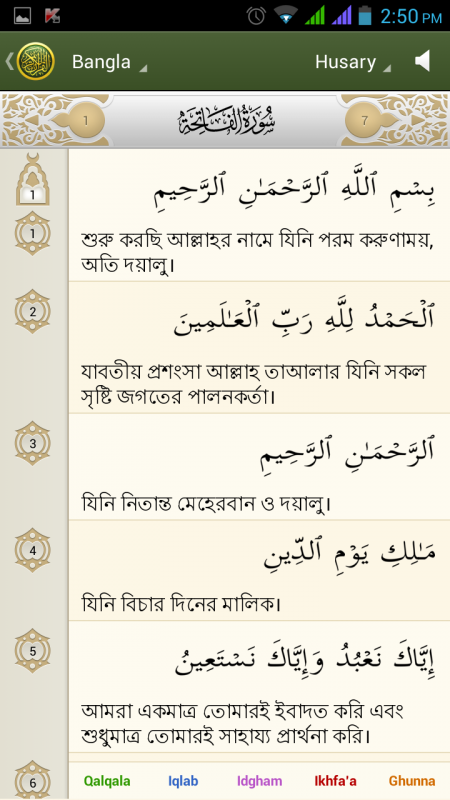 2:50 PM
Bangla
Husary
1
سُورَةُ الفَاتِحَة
7
1
بِسْمِ ٱللَّهِ ٱلرَّحْمَـٰنِ ٱلرَّحِيمِ
1
শুরু করছি আল্লাহর নামে যিনি পরম করুণাময়,
অতি দয়ালু।
2
ٱلْحَمْدُ لِلَّهِ رَبِّ ٱلْعَـٰلَمِينَ
যাবতীয় প্রশংসা আল্লাহ তাআলার যিনি সকল
সৃষ্টি জগতের পালনকর্তা।
3
ٱلرَّحْمَـٰنِ ٱلرَّحِيمِ
যিনি নিতান্ত মেহেরবান ও দয়ালু।
4
مَـٰلِكِ يَوْمِ ٱلدِّينِ
যিনি বিচার দিনের মালিক।
5
إِيَّاكَ نَعْبُدُ وَإِيَّاكَ نَسْتَعِينُ
আমরা একমাত্র তোমারই ইবাদত করি এবং
শুধুমাত্র তোমারই সাহায্য প্রার্থনা করি।
6
Qalqala Iqlab Idgham Ikhfa'a Ghunna